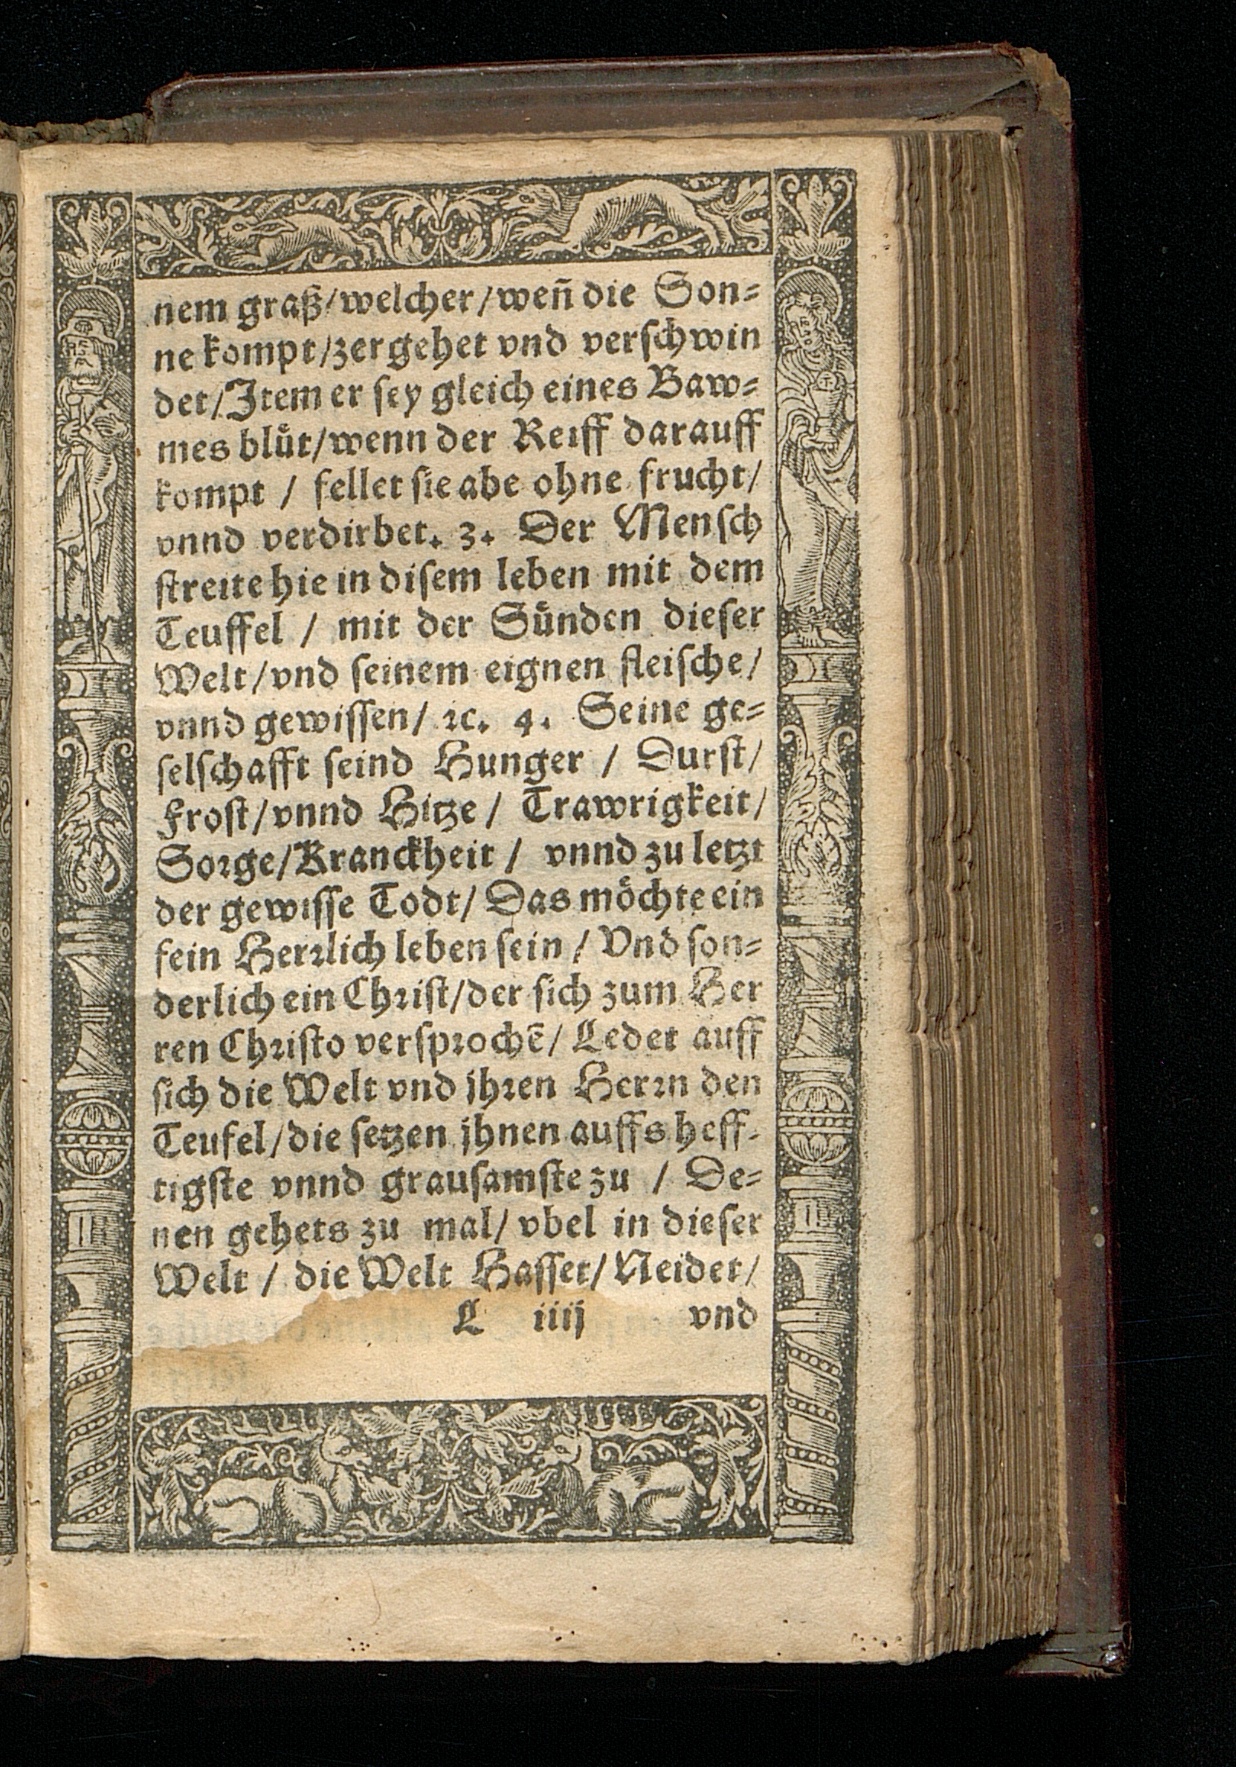 nem graß/welcher/weñ die Son⸗
ne kompt/zergehet vnd verschwin
det/Item er sey gleich eines Baw⸗
mes bluͤt/wenn der Reiff darauff
kompt / fellet sie abe ohne frucht/
vnnd verdirbet. 3. Der Mensch
streite hie in disem leben mit dem
Teuffel / mit der Suͤnden dieser
Welt/vnd seinem eignen fleische/
vnnd gewissen/ ꝛc. 4. Seine ge⸗
selschafft seind Hunger / Durst/
Frost/vnnd Hitze / Trawrigkeit/
Sorge/Kranckheit / vnnd zu letzt
der gewisse Todt/ Das moͤchte ein
fein Herrlich leben sein / Vnd son⸗
derlich ein Christ/der sich zum Her
ren Christo versprochē/ Ledet auff
sich die Welt vnd jhren Herrn den
Teufel/die setzen jhnen auffs heff-
tigste vnnd grausamste zu / De⸗
nen gehets zu mal/ vbel in dieser
Welt / die Welt Hasset/Neidet/
L iiij vnd